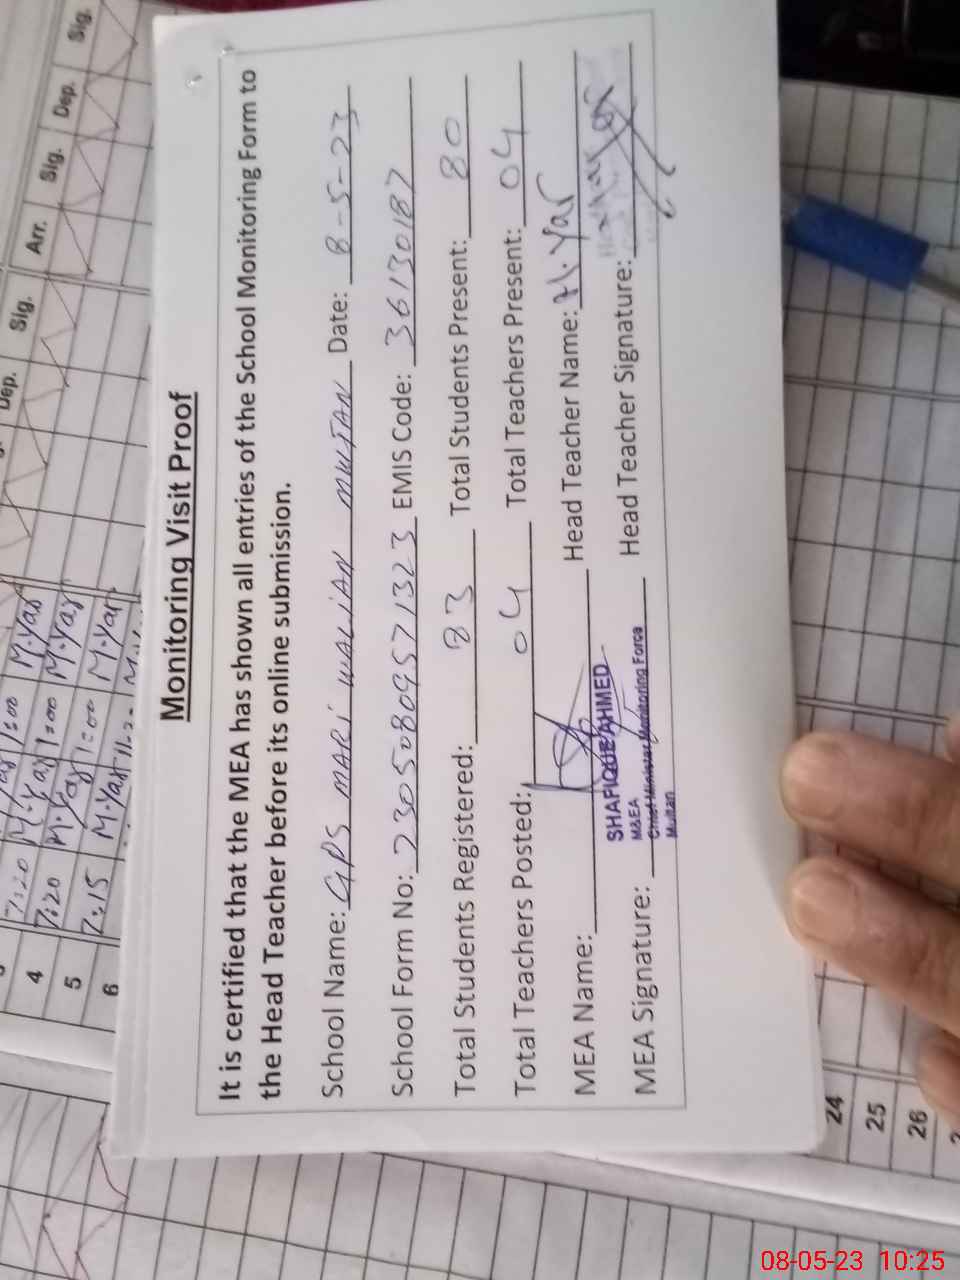 Monitoring Visit Proof
It is certified that the MEA has shown all entries of the School Monitoring Form to
the Head Teacher before its online submission.
School Name: GPS MARI WALIAN MULTAN Date: 8-5-23
School Form No: 23050809571323 EMIS Code: 36130187
Total Students Registered: 83 Total Students Present: 80
Total Teachers Posted: 04 Total Teachers Present: 04
MEA Name: Head Teacher Name: M. Yar
SHAFIQUE AHMED
M&EA
Chief Minister Monitoring Force
Multan
MEA Signature: Head Teacher Signature:
Dep. Sig. Arr. Sig. Dep. Sig.
7:20 M.Yar 1:00 M.Yar
4 7:20 M.Yar 1:00 M.Yar
5 7:15 M.Yar 1:00 M.Yar
6
24
25
26
08-05-23 10:25